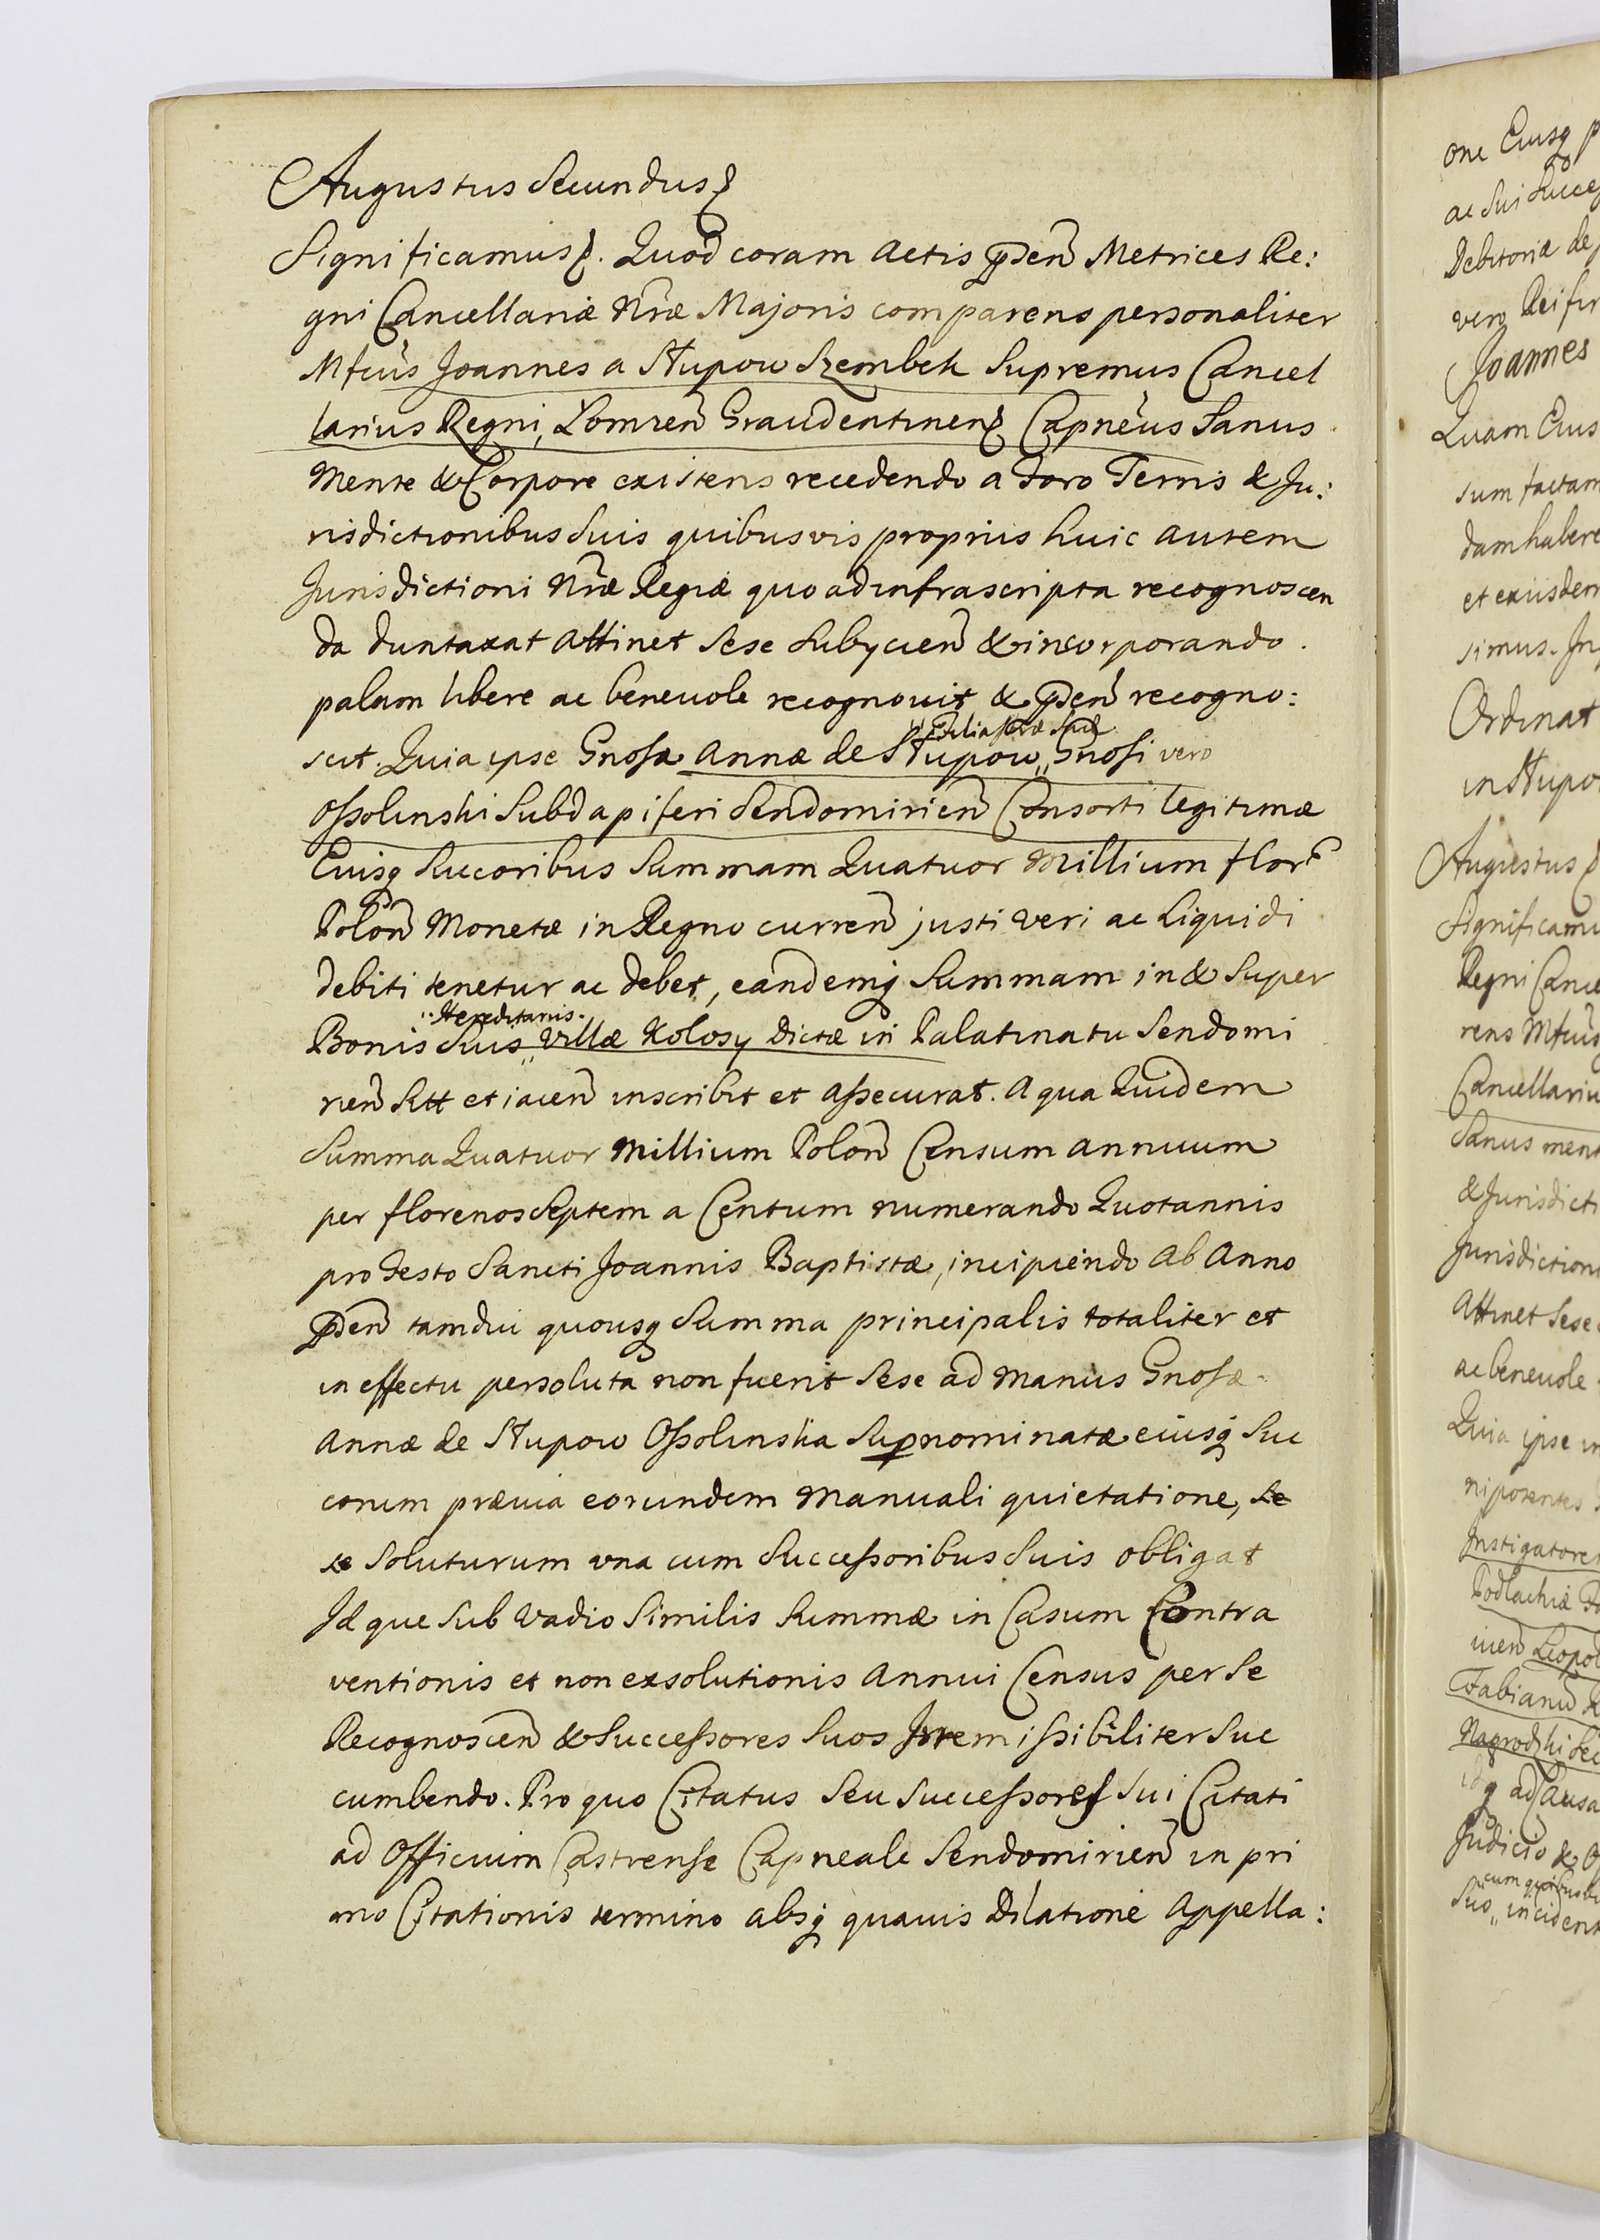 Augustus Secundus
Significamus. Quod coram Actis pñden Metrices Re:
gni Cancellariæ Nræ Majoris comparens personaliter
Mfcus Joannes a Słupow Szembek Supremus Cancel
larius Regni, Lomzen Graudentinen Capneus Sanus
Mente & Corpore existens recedendo a Foro Terris & Ju:
risdictionibus Suis quibusvis proprijs huic autem
Jurisdictioni Nræ Regiæ quo ad infrascripta recognoscen
da duntaxat Attinet Sese Subycien & incorporando.
palam libere ac beneuole recognouit & pñden recogno:
scit. Quia ipse Gnosæ Annæ de Słupow Gnosi vero
Ossolinski Subdapiferi Sendomirien Consorti legitimæ
Eiusq Succoribus Summam Quatuor Millium flor
Polon Monetæ in Regno curren justi veri ac Liquidi
debiti tenetur ac debet, eandemq Summam in & Super
Hereditariis
Bonis Suis Villæ Kolosy Dictæ in Palatinatu Sendomi
rien Sitt et iacen inscribit et Assecurat. A qua Quidem
Summa Quatuor Millium Polon Censum annuum
per florenos Septem a Centum numerando Quotannis
pro Festo Sancti Joannis Baptistæ, incipiendo Ab Anno
pñden tamdiu quousq Summa principalis totaliter et
in effectu persoluta non fuerit Sese ad Manus Gnosæ
Annæ de Słupow Ossolinska Supnominatæ eiusq Suc
corum præuia eorundem Manuali quietatione, se
se Soluturum una cum Successoribus Suis obligat
Id que Sub Vadio Similis Summæ in Casum Contra
ventionis et non exsolutionis Annui Census per Se
Recognoscen & Successores Suos Irremissibiliter Suc
cumbendo. Pro quo Citatus Seu Successores Sui Citati
ad Officium Castrense Capneale Sendomirien in pri
mo Citationis termino absq quauis Dilatione Appella:
one Eiusq
ac Sui Succes
Debitoriæ de
vero Rei fir
Joannes
Quam Eius
sum factam
dam habere
et eiusdem
simus. In
Ordinat
in Słupo
Augustus
Significamu
Regni Cance
rens Mfcus
Cancellariu
Sanus ment
& Jurisdicti
Jurisdictioni
Attinet Sese
ac beneuole
Quia ipse
nipotentes
Instigatores
Podlachiæ
Leopol
Fabianu
q ad Causa
Judicio &
cum quibusu
Suo incident